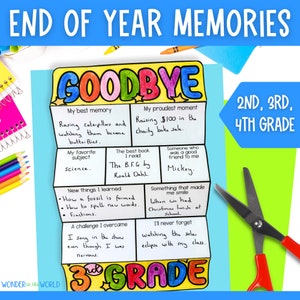 END OF YEAR MEMORIES
GOODBYE
2ND, 3RD,
4TH GRADE
My best memory
Raising caterpillars and
watching them become
butterflies.
My proudest moment
Raising $100 in the
charity bake sale.
My favorite
subject
Science.
The best book
I read
The B.F.G by
Roald Dahl.
Someone who was
a good friend
to me
Mickey.
New things I learned
• How a fossil is formed
• How to spell new words.
• Fractions.
Something that made
me smile
When we had
Christmas lunch at
school.
A challenge I overcame
I sang in the show
even though I was
nervous.
I'll never forget
watching the solar
eclipse with my class.
3rd GRADE
WONDER IN THE WORLD